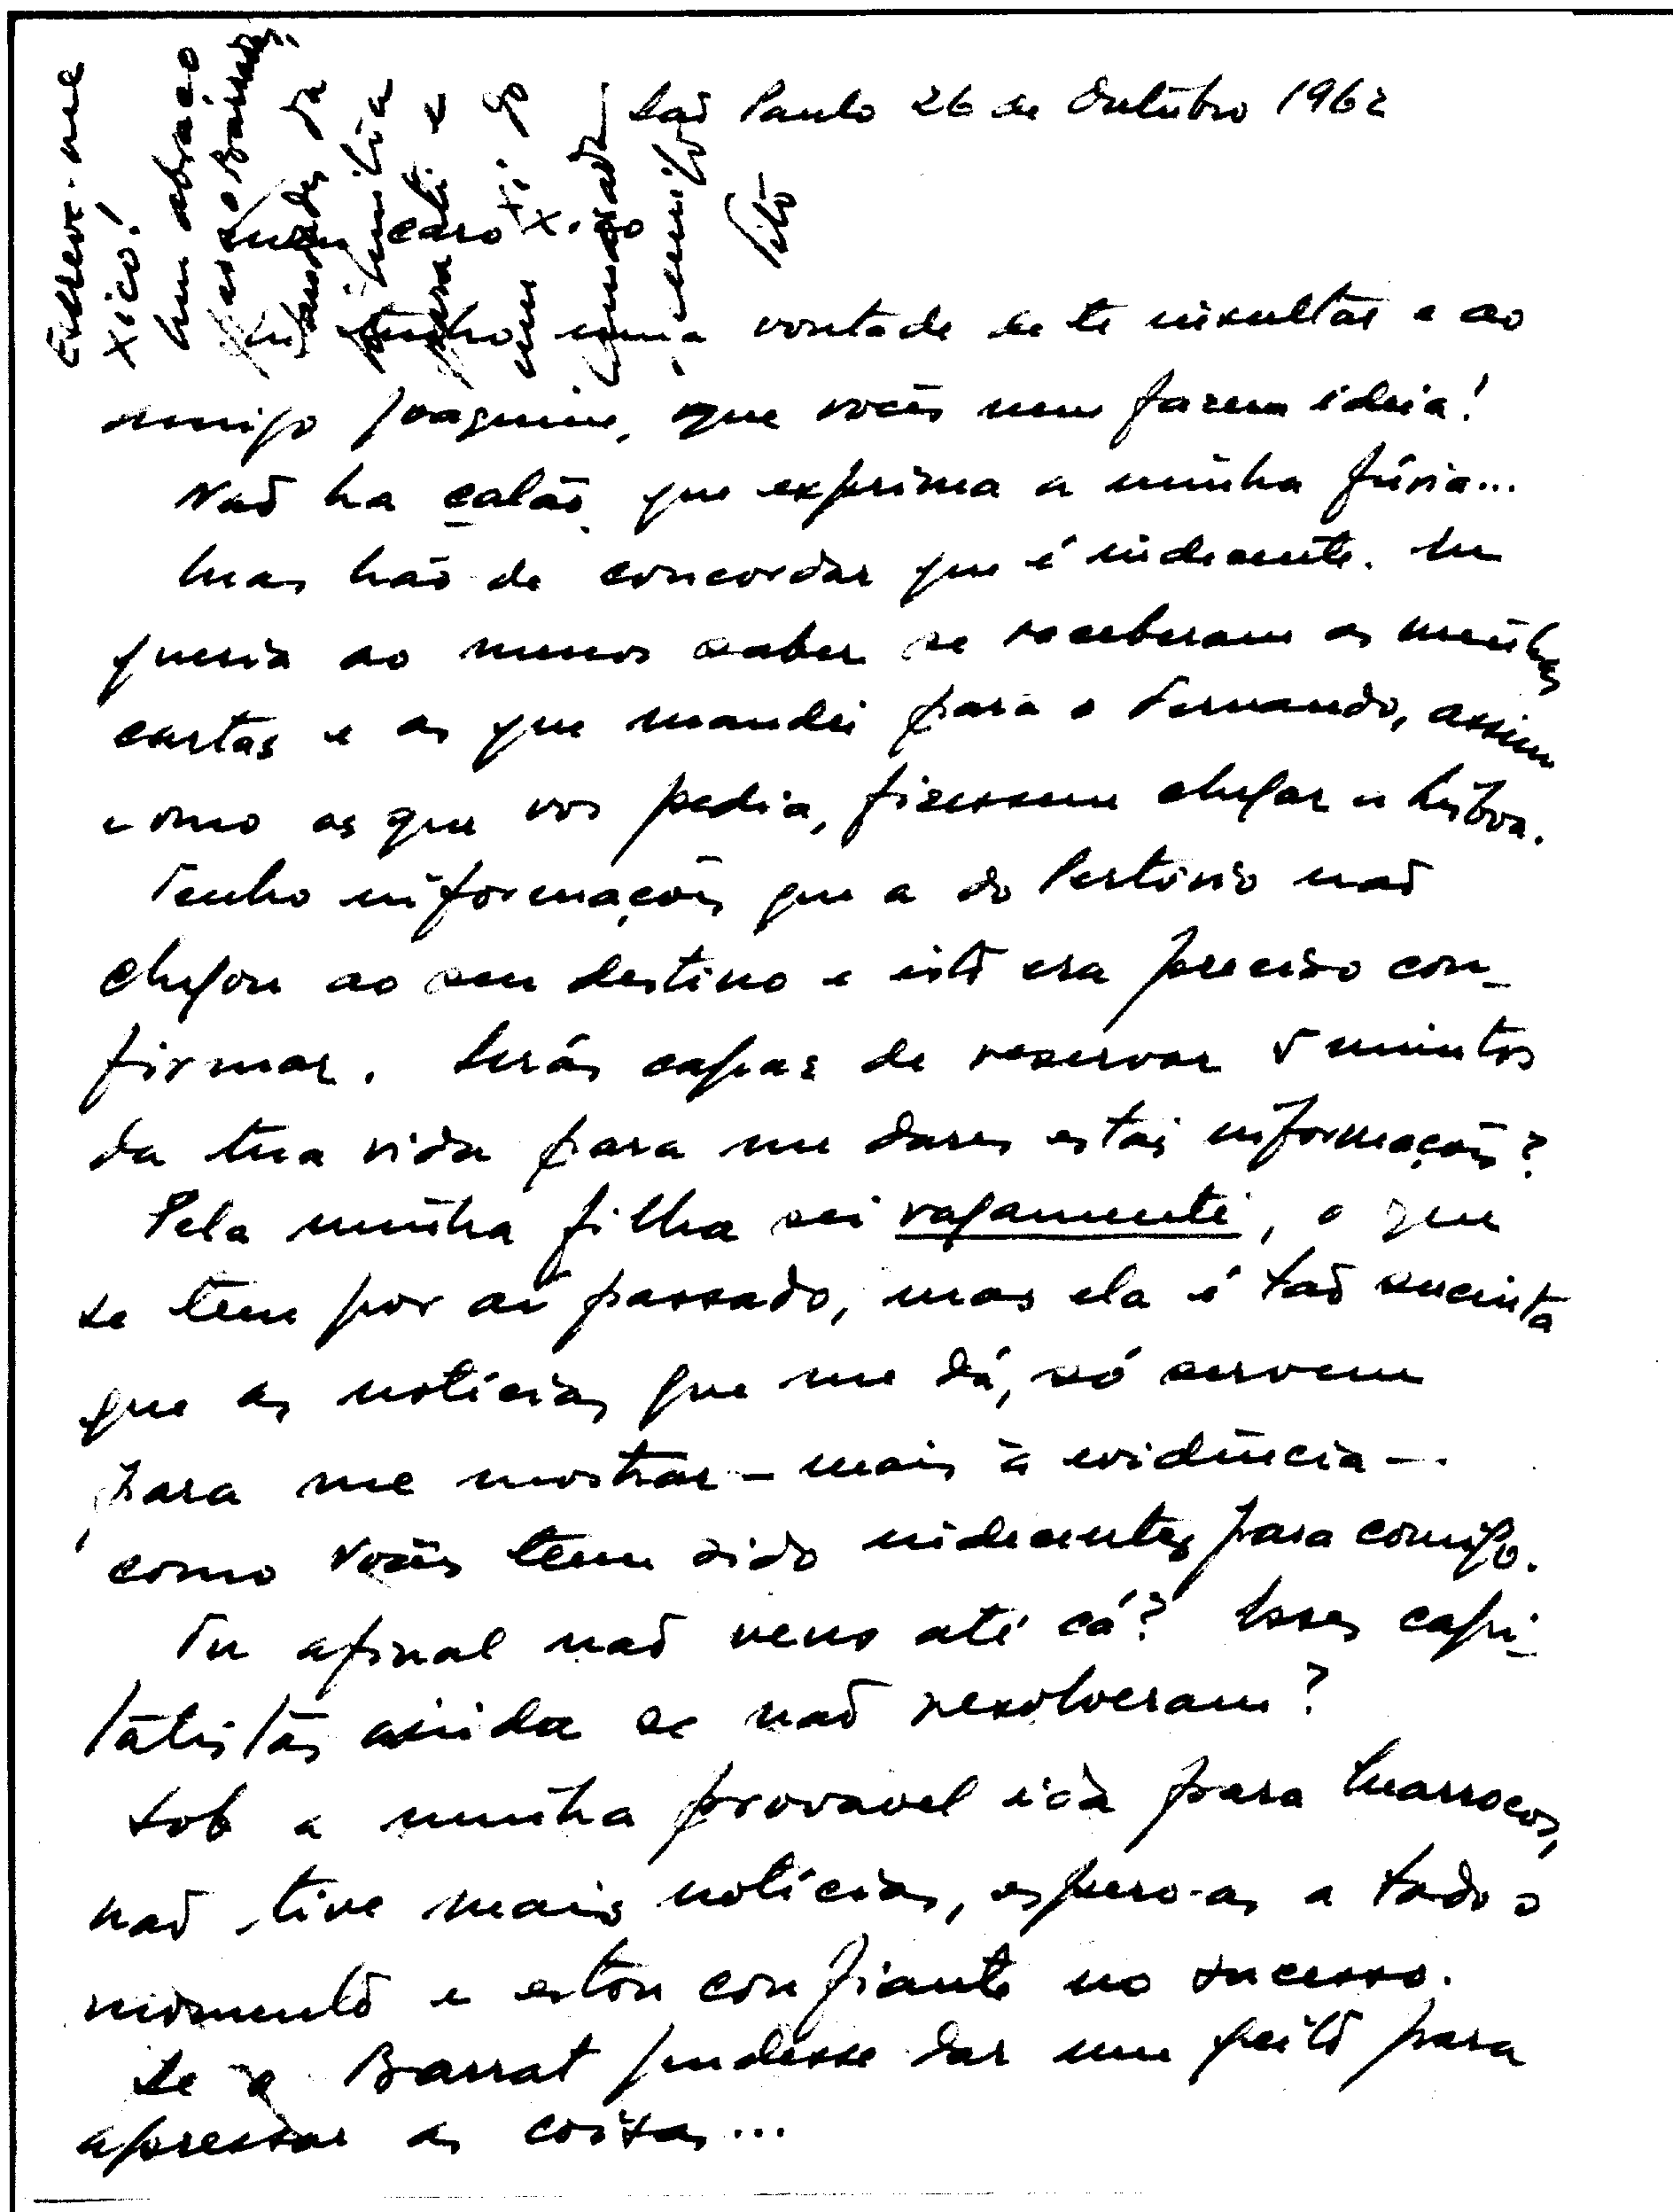 São Paulo 26 de Outubro 1962
Meu caro Xico
Eu tenho uma vontade de te insultar e ao
amigo Joaquim, que vocês nem fazem ideia!
Não ha calão que exprima a minha fúria...
Mas hão de concordar que é indecente. Eu
queria ao menos saber se receberam as minhas
cartas e as que mandei para o Fernando, assim
como as que vos pedia, fizessem chegar a Lisboa.
Tenho informações que a do Pertório não
chegou ao seu destino e isto era preciso con-
firmar. Serás capaz de reservar 5 minutos
da tua vida para me dares estas informações?
Pela minha filha sei vagamente, o que
se tem por aí passado, mas ela é tão sucinta
que as notícias que me dá, só servem
para me mostrar - mais à evidência -
como vocês tem sido indecentes para comigo.
Tu afinal não vens até cá? Esses capi-
talistas ainda se não resolveram?
Sob a minha provavel ida para Marrocos,
não tive mais notícias, espero-as a todo o
momento e estou confiante no sucesso.
Se o Barrat pudesse dar um geito para
apressar as coisas...
Escreve-me
Xico!
Um abraço
saudades da
familia
para ti e
um Xi do
amigo
Tito